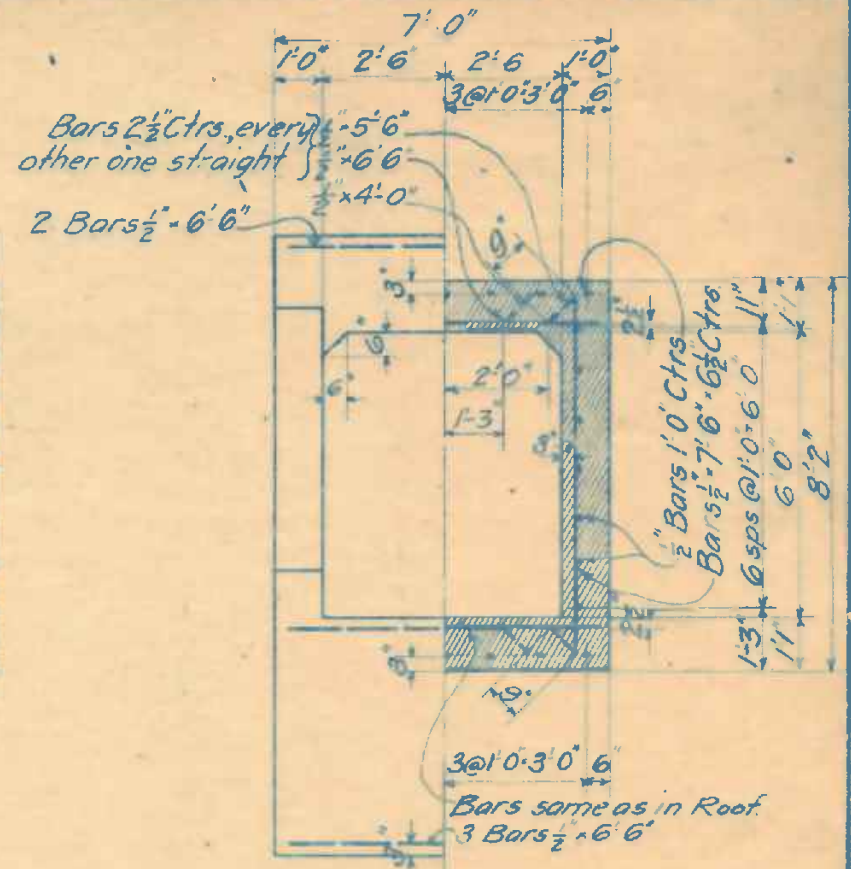 7'-0"
1'-0" 2'-6" 2'-6 1'-0"
3@1'-0"=3'-0" 6"
Bars 2½" Ctrs., every "×5'-6"
other one straight "×6'6"
"×4'-0"
2 Bars ½"×6'6"
9"
3"
2½"
11"
1'-1"
6"
6"
2'-0"
1'-3"
3"
½" Bars 1'-0" Ctrs
Bars ½"×7'-6"×6½" Ctrs.
6 sps @1'-0"=6'-0
6'-0"
8'-2"
2½"
1'-3"
1'1"
3"
3@1'-0"=3'-0" 6"
Bars same as in Roof.
3 Bars ½"×6'6"